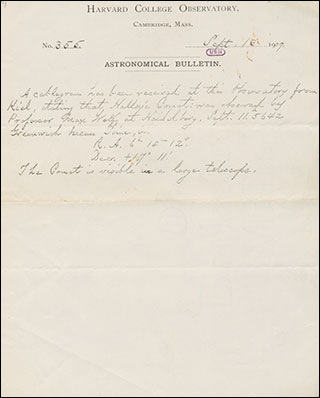 HARVARD COLLEGE OBSERVATORY,
CAMBRIDGE, MASS.
No. 355. Sept. 190
ASTRONOMICAL BULLETIN.
A cablegram has been received at this Observatory from
Kiel, stating that Halley's Comet was observed by
Professor Max Wolf, at Heidelberg, Sept. 11.5642
Greenwich Mean Time, in
R.A. 6h 18m 12s
Decl. +17° 11'
The Comet is visible in a large telescope.